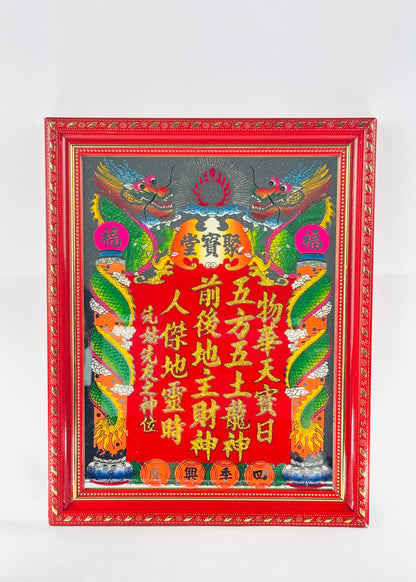 聚寳堂
福
福
物華天寳日
五方五土龍神
前後地主財神
人傑地靈時
先好先友之神位
四季興隆